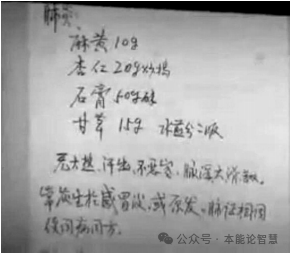 肺炎:
麻黄10g
杏仁20g炒捣
石膏50g碎
甘草15g 水煎分二服
无大热、汗出、不恶寒、脉深大滑数。
常发生于感冒后,或原发。脉证相同
公众号·本能论智慧